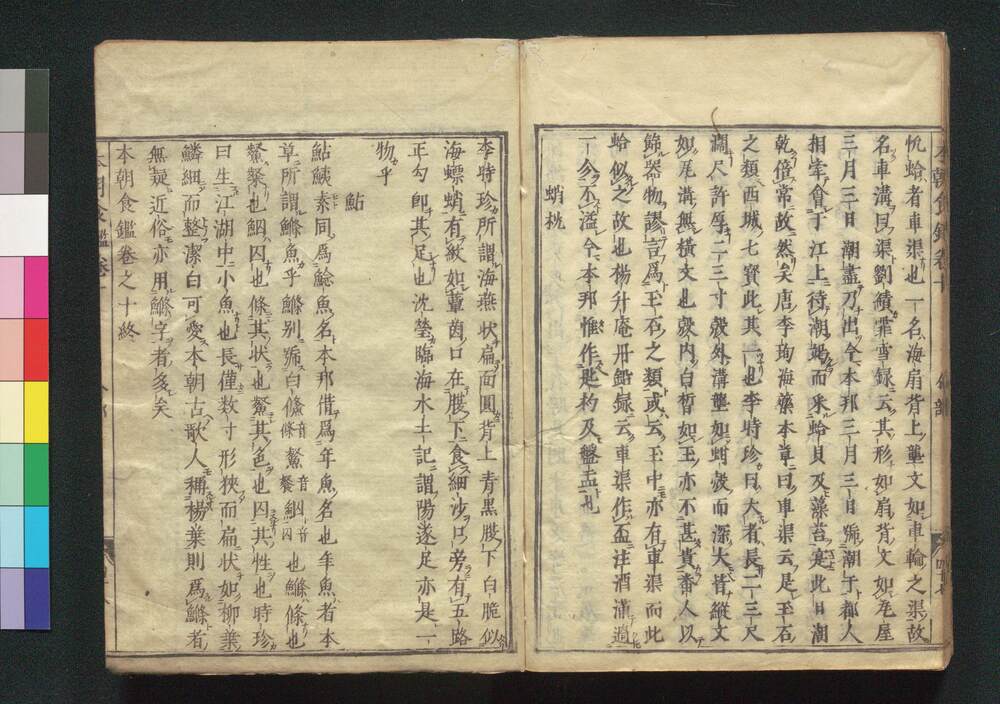 忱蛤者車渠也一名海扇背上壟文如車輪之渠故
名車溝曰渠劉績霏雪録云其形如扇背文如瓦屋
三月三日潮盡乃出今本邦三月三日號潮干都人
相率會于江上待潮竭而采蛤貝及藻苔寔此日潮
乾倍常故然矣唐李珣海藥本草曰車渠云是玉石
之類西域七寳此其一也李時珍曰大者長二三尺
濶尺許厚二三寸殻外溝壟如蚶殻而深大皆縱文
如瓦溝無横文也殻内白皙如玉亦不甚貴番人以
飾器物謬言爲玉石之類或云玉中亦有車渠而此
蛤似之故也楊升庵丹鉛録云車渠作盃注酒滿過
一分不溢今本邦惟作匙杓及盤盂也
蛸枕
李時珍所謂海燕状扁面圓背上青黒腹下白脆似
海螵蛸有紋如蕈茵口在腹下食細沙口旁有五路
正勾即其足也沈瑩臨海水土記謂陽遂足亦是一
物乎
鮎
鮎鮧素同爲鯰魚名本邦借爲年魚名也年魚者本
草所謂鰷魚乎鰷別號白鯈鯈音條鰵音餐鮂音囚也鰷條也
鰵粲也鮂囚也條其状也鰵其色也囚其性也時珍
曰生江湖中小魚也長僅数寸形狹而扁状如柳葉
鱗細而整潔白可愛本朝古歌人稱楊葉則爲鰷者
無疑近俗亦用鰷字者多矣
本朝食鑑卷之十終